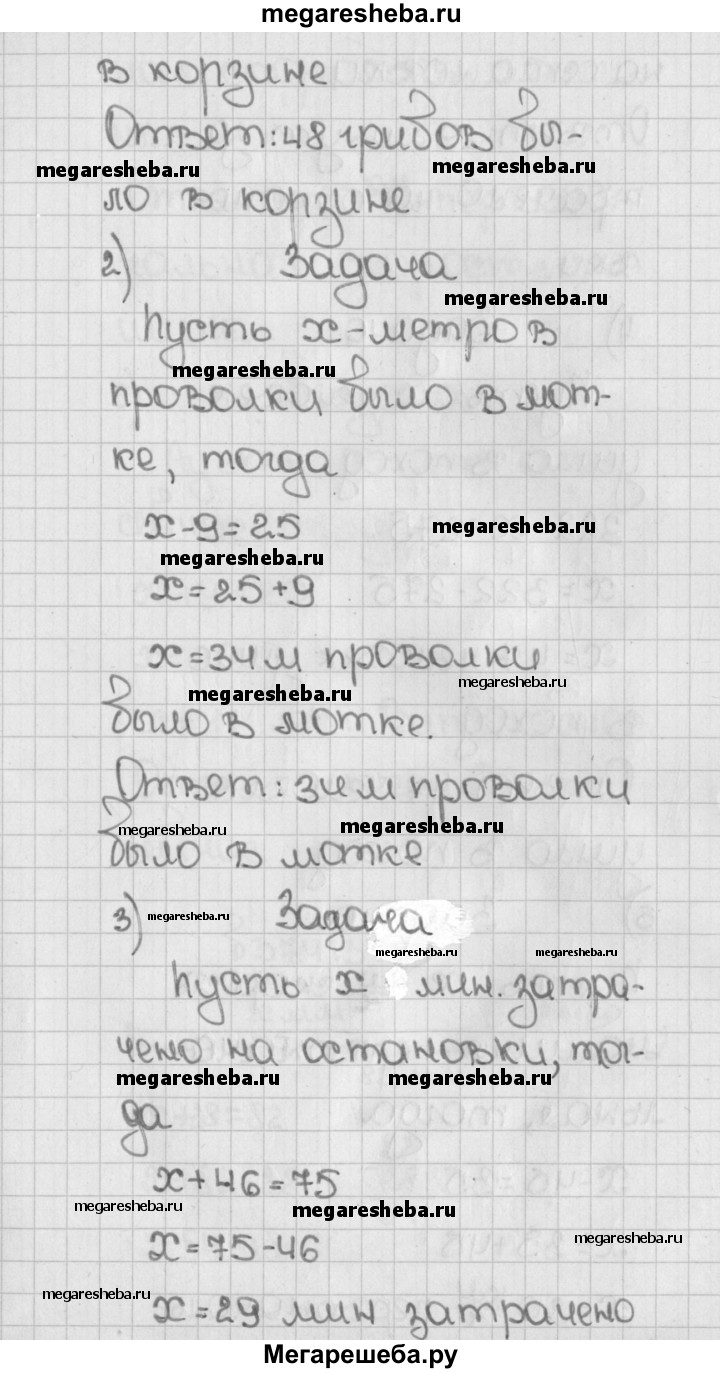 megaresheba.ru
в корзине
Ответ: 48 грибов бы-
megaresheba.ru megaresheba.ru
ло в корзине
2) Задача
megaresheba.ru
Пусть x - метров
megaresheba.ru
проволки было в мот-
ке, тогда
x - 9 = 25 megaresheba.ru
megaresheba.ru
x = 25 + 9
x = 34 м проволки
megaresheba.ru megaresheba.ru
было в мотке.
Ответ: 34 м проволки
megaresheba.ru megaresheba.ru
было в мотке
3) megaresheba.ru Задача
megaresheba.ru megaresheba.ru
Пусть x мин. затра-
чено на остановки, тог-
megaresheba.ru megaresheba.ru
да
x + 46 = 75
megaresheba.ru megaresheba.ru
x = 75 - 46 megaresheba.ru
megaresheba.ru
x = 29 мин затрачено
Мегарешеба.ру